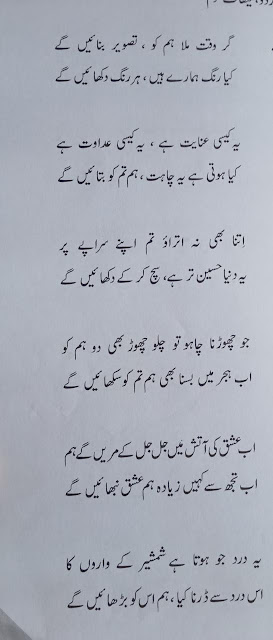 گر وقت ملا ہم کو ، تصویر بنائیں گے
کیا رنگ ہمارے ہیں ، ہر رنگ دکھائیں گے
یہ کیسی عنایت ہے ، یہ کیسی عداوت ہے
کیا ہوتی ہے یہ چاہت ، ہم تم کو بتائیں گے
اِتنا بھی نہ اتراؤ تم اپنے سراپے پر
یہ دنیا حسین تر ہے ، سچ کر کے دکھائیں گے
جو چھوڑنا چاہو تو چلو چھوڑ بھی دو ہم کو
اب ہجر میں بسنا بھی ہم تم کو سکھائیں گے
اب عشق کی آتش میں جل جل کے مریں گے ہم
اب تجھ سے کہیں زیادہ ہم عشق نبھائیں گے
یہ درد جو ہوتا ہے شمشیر کے واروں کا
اس درد سے ڈرنا کیا ، ہم اس کو بڑھائیں گے